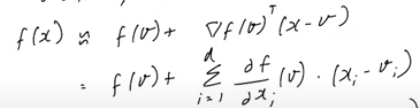 f(x) ≈ f(v) + ∇f(v)ᵀ(x − v)
= f(v) + ∑_{i=1}^{d} ∂f/∂x_i (v) · (x_i − v_i)